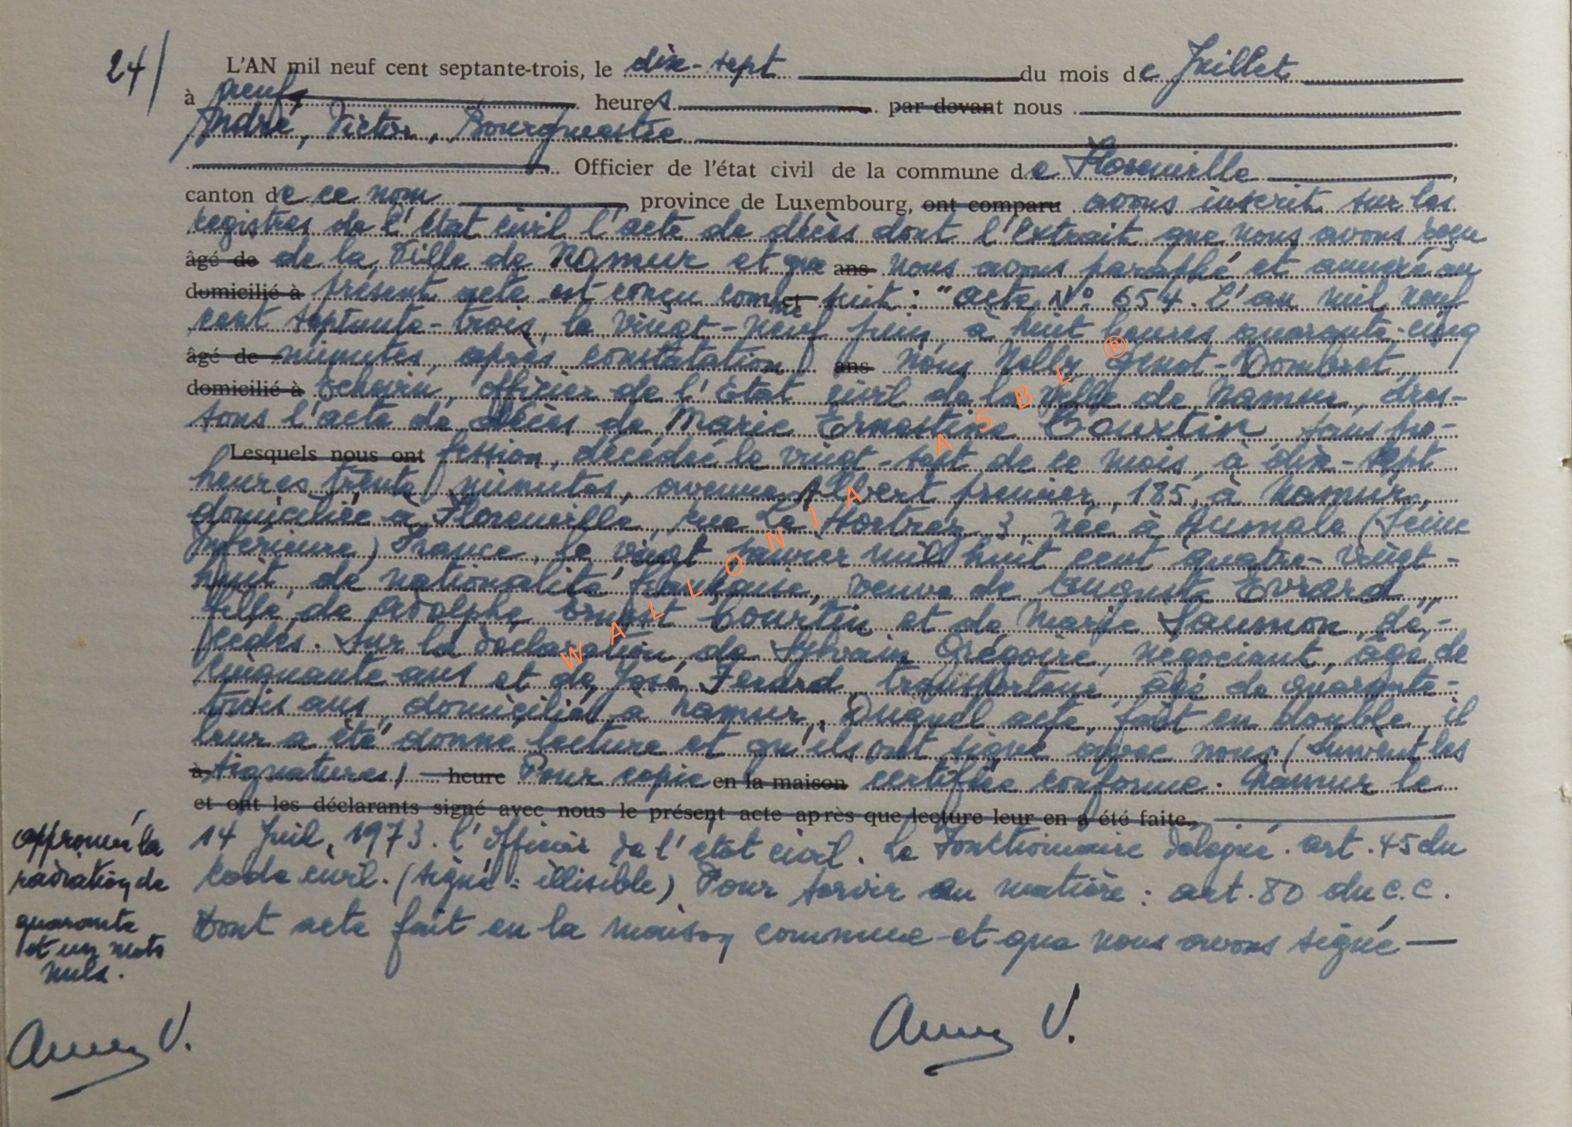 24/
L'AN mil neuf cent septante-trois, le dix-sept du mois de Juillet
à neuf heures par devant nous
André, Victor, Bourguestie
Officier de l'état civil de la commune de Florenville,
canton de ce nom, province de Luxembourg, ont comparu avons inscrit sur les
registres de l'Etat civil l'acte de décès dont l'extrait que nous avons reçu
âgé de de la Ville de Namur et que ans nous avons paraphé et annexé au
domicilié à présent acte est conçu comme et suit : "acte N° 654. L'an mil neuf
cent septante-trois, le vingt-neuf juin, à huit heures quarante-cinq
âgé de minutes, après constatation, ans Nous Nelly Genot-Dombret,
domicilié à Echevin, officier de l'Etat civil de la Ville de Namur, dres-
sons l'acte de décès de Marie Ernestine Courtin sans pro-
Lesquels nous ont fession, décédée le vingt-sept de ce mois, à dix-sept
heures trente minutes, avenue Albert premier, 185, à Namur,
domiciliée à Florenville, rue 3 née à Aumale (Seine
Inférieure) France, le vingt janvier mil huit cent quatre-vingt-
huit, de nationalité française, veuve de Auguste Evrard,
fille de Adolphe Ernest Courtin et de Marie Saumon, dé-
cédés. Sur la déclaration de Sylvain Grégoire, négociant, âgé de
cinquante ans et de José Ferard, transporteur, âgé de quarante-
trois ans, domiciliés à Namur, Duquel acte, fait en double, il
leur a été donné lecture et qu'ils ont signé avec nous, (suivent les
à signatures) heure Pour copie en la maison certifiée conforme. Namur le
et ont les déclarants signé avec nous le présent acte après que lecture leur en a été faite.
14 Juil. 1973. l'officier de l'état civil. Le Fonctionnaire délégué. art. 45 du
code civil. (signé : illisible) Pour servir en matière : art. 80 du C.C.
Dont acte fait en la maison commune et que nous avons signé
approuvé la
radiation de
quarante
et un mots
nuls.
WALLONIA ASBL ®